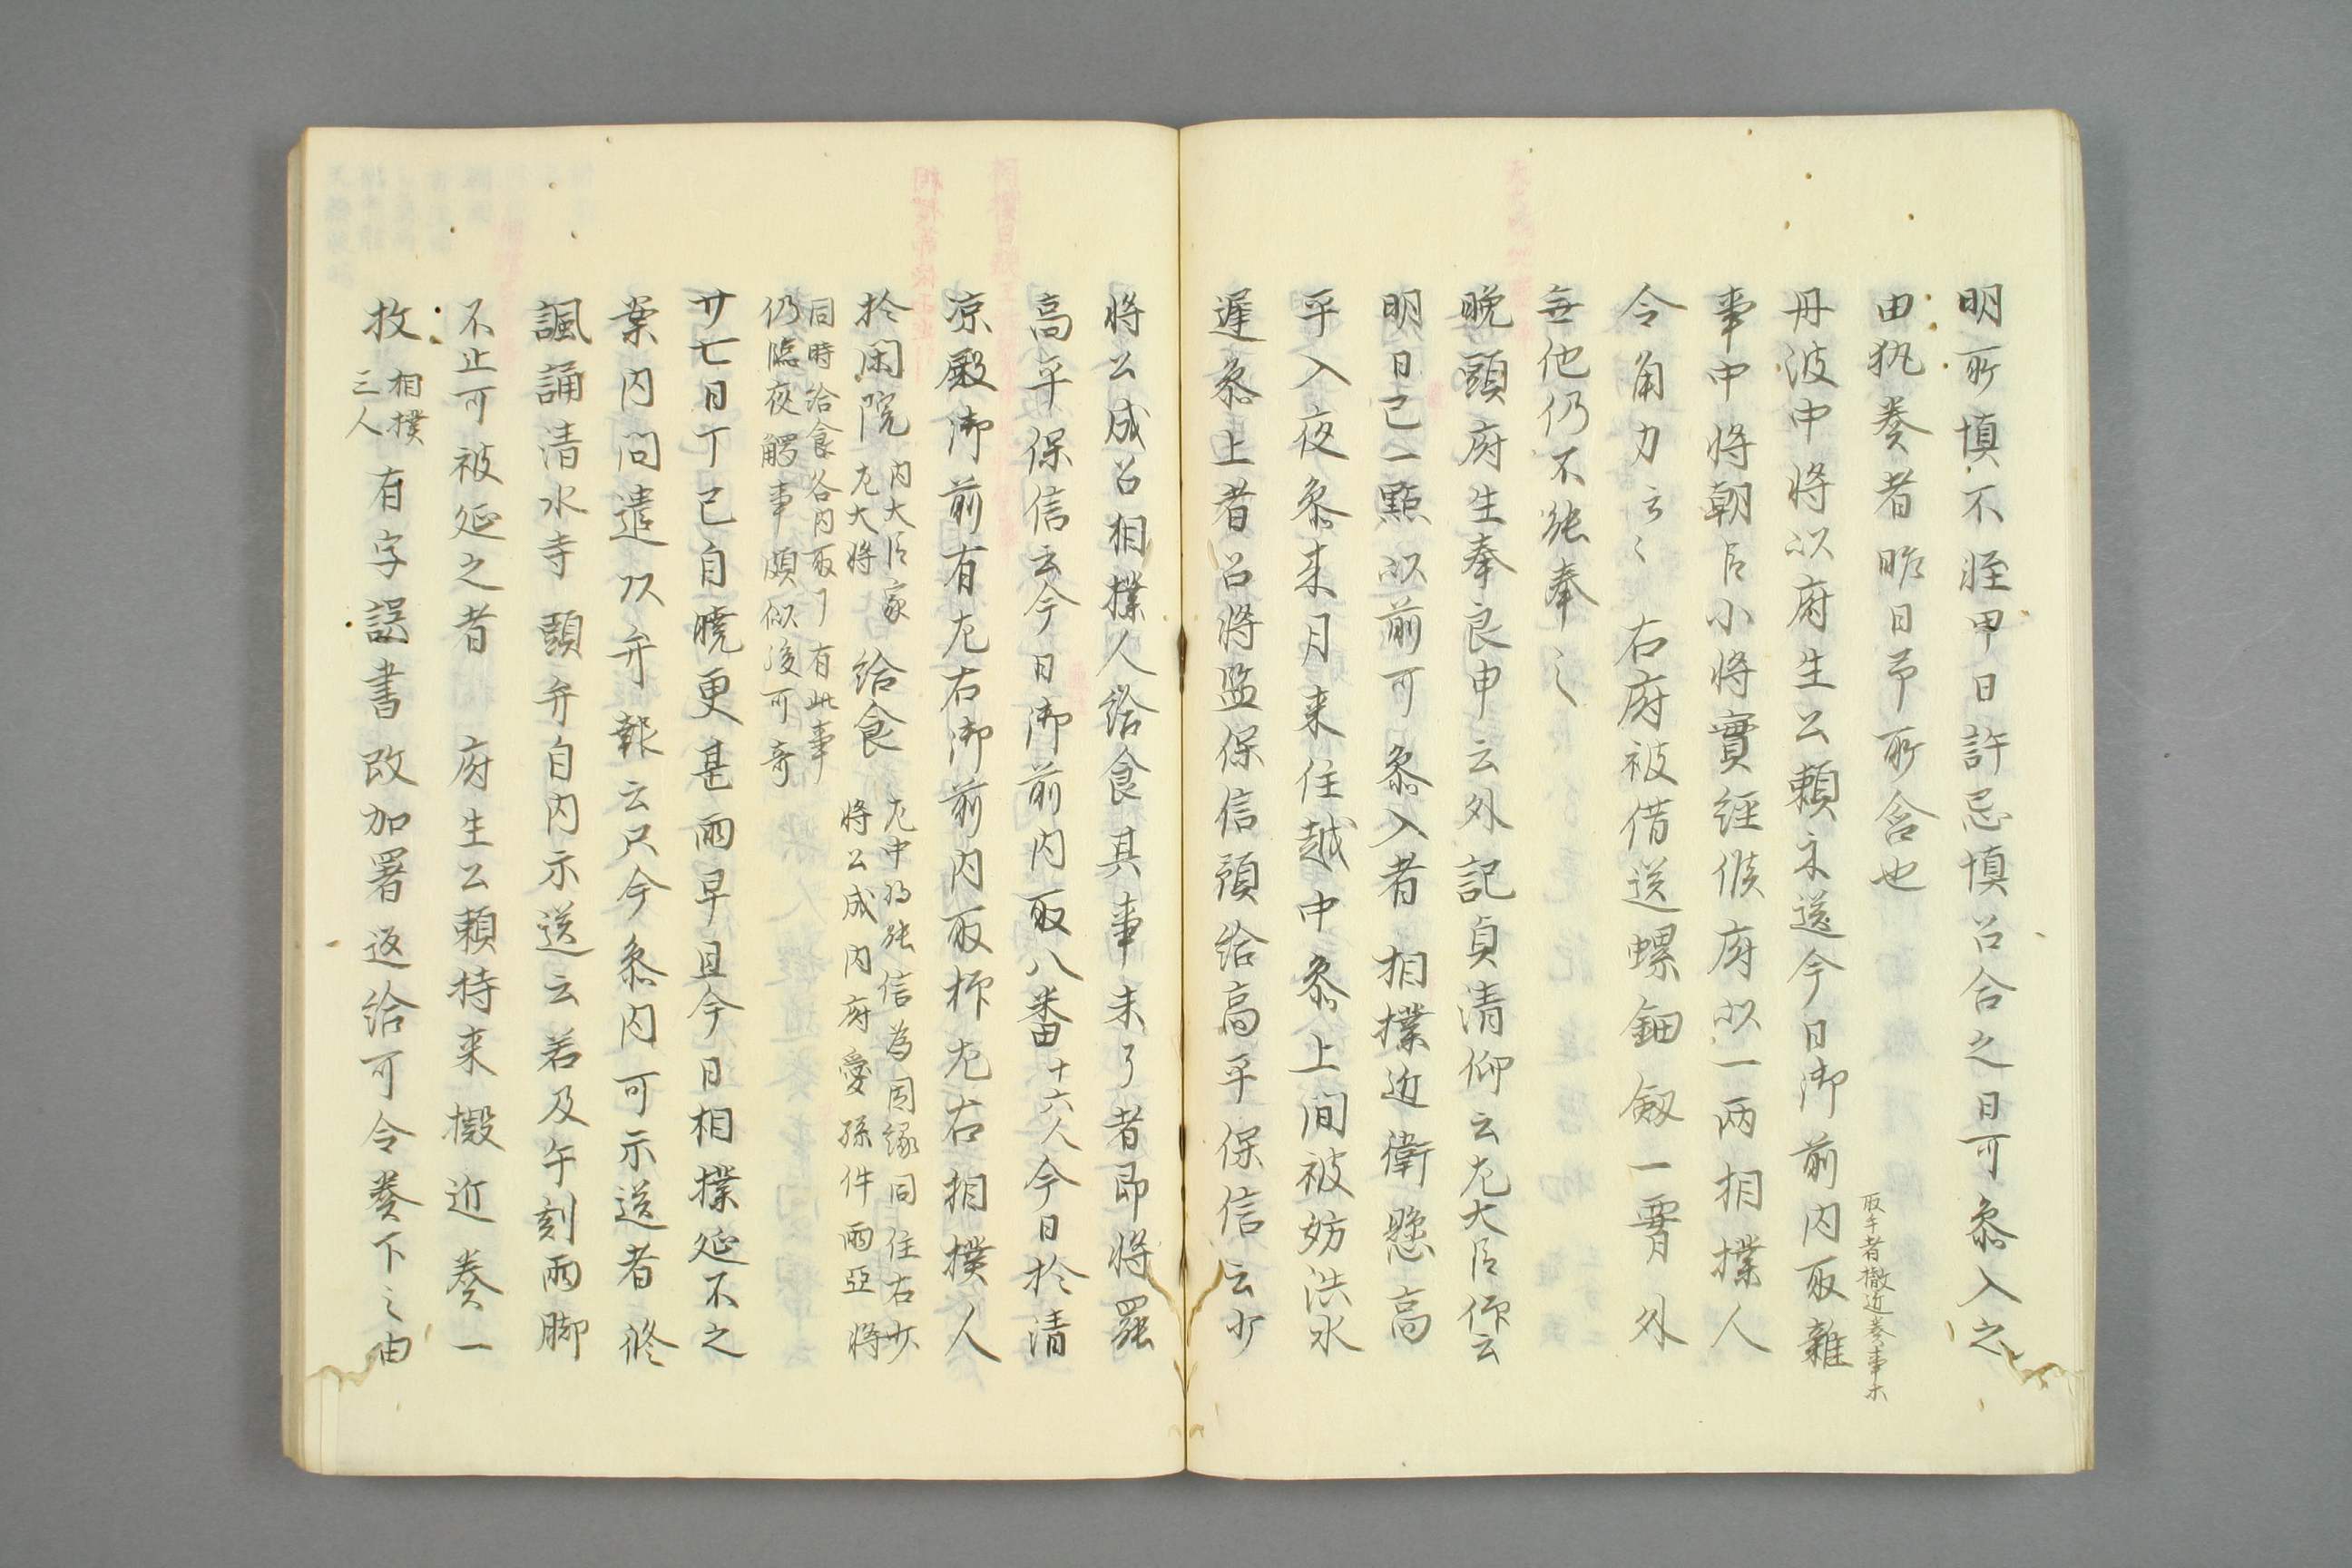 明所慎不軽甲日許忌慎召合之日可参入之
由執奏者昨日予所含也
取手者撤近奏事等
丹波中将以府生公頼示送今日御前内取雑
事中将朝臣小将實經候府以一両相撲人
令角力云々右府被借送螺鈿劔一腰外
無他仍不能奉之
晩頭府生奉良申云外記貞清仰云左大臣仰云
明日已一點以前可参入者相撲近衛懸高
平入夜参来月来住越中参上間被妨洪水
遅参上者召将監保信預給高平保信云少
将公成召相撲人給食其事未了者即将罷
高平保信云今日御前内取八番十六人今日於清
凉殿御前有左右御前内取抑左右相撲人
於閑院内大臣家
左大将給食左中将能信為因縁同住右少
将公成内府愛孫件両亞将
同時給食各内取了有此事
仍臨夜觸事頗似後可奇
廿七日丁巳自曉更甚雨早旦今日相撲延不之
案内問遣頭弁報云只今参内可示送者修
諷誦清水寺頭弁自内示送云若及午刻雨脚
不止可被延之者府生公頼持来擬近奏一
枚相撲
三人有字誤書改加署返給可令奏下之由